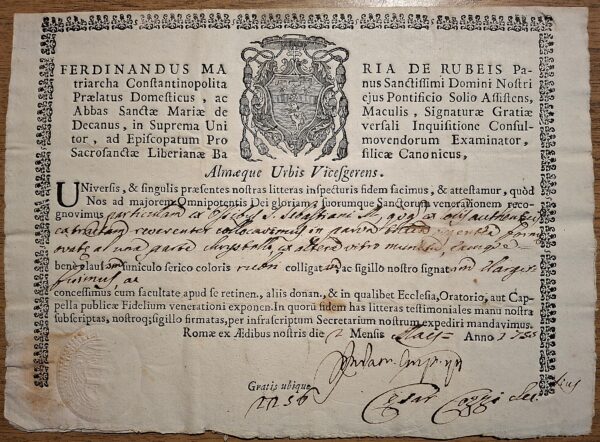 FERDINANDUS MARIA DE RUBEIS Pa-
triarcha Constantinopolitanus Sanctissimi Domini Nostri
Prælatus Domesticus, ac ejus Pontificio Solio Assistens,
Abbas Sanctæ Mariæ de Maculis, Signaturæ Gratiæ
Decanus, in Suprema Universali Inquisitione Consul-
tor, ad Episcopatum Promovendorum Examinator,
Sacrosanctæ Liberianæ Basilicæ Canonicus,
Almæque Urbis Vicesgerens.
Universis, & singulis præsentes nostras litteras inspecturis fidem facimus, & attestamur, quòd
Nos ad majorem Omnipotentis Dei gloriam, suorumque Sanctorum venerationem reco-
gnovimus particulam ex Ossibus S. Sebastiani M., quam ex
extractam reverenter collocavimus in
ovatæ ab una parte chrystallo ex altera vitro munita,
bene clausam, funiculo serico coloris rubri colligatam, ac sigillo nostro signatam
ac
concessimus cum facultate apud se retinen., aliis donan., & in qualibet Ecclesia, Oratorio, aut Cap-
pella publicæ Fidelium venerationi exponen. In quorū fidem has litteras testimoniales manu nostra
subscriptas, nostroq; sigillo firmatas, per infrascriptum Secretarium nostrum expediri mandavimus.
Romæ ex Ædibus nostris die 2 Mensis Anno
Gratis ubique